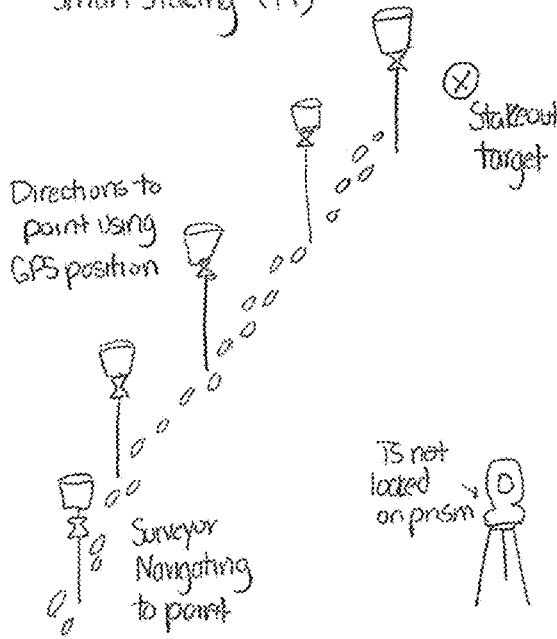 Smart Staking (TT)
Stakeout
target
Directions to
point using
GPS position
TS not
locked
on prism
Surveyor
Navigating
to point